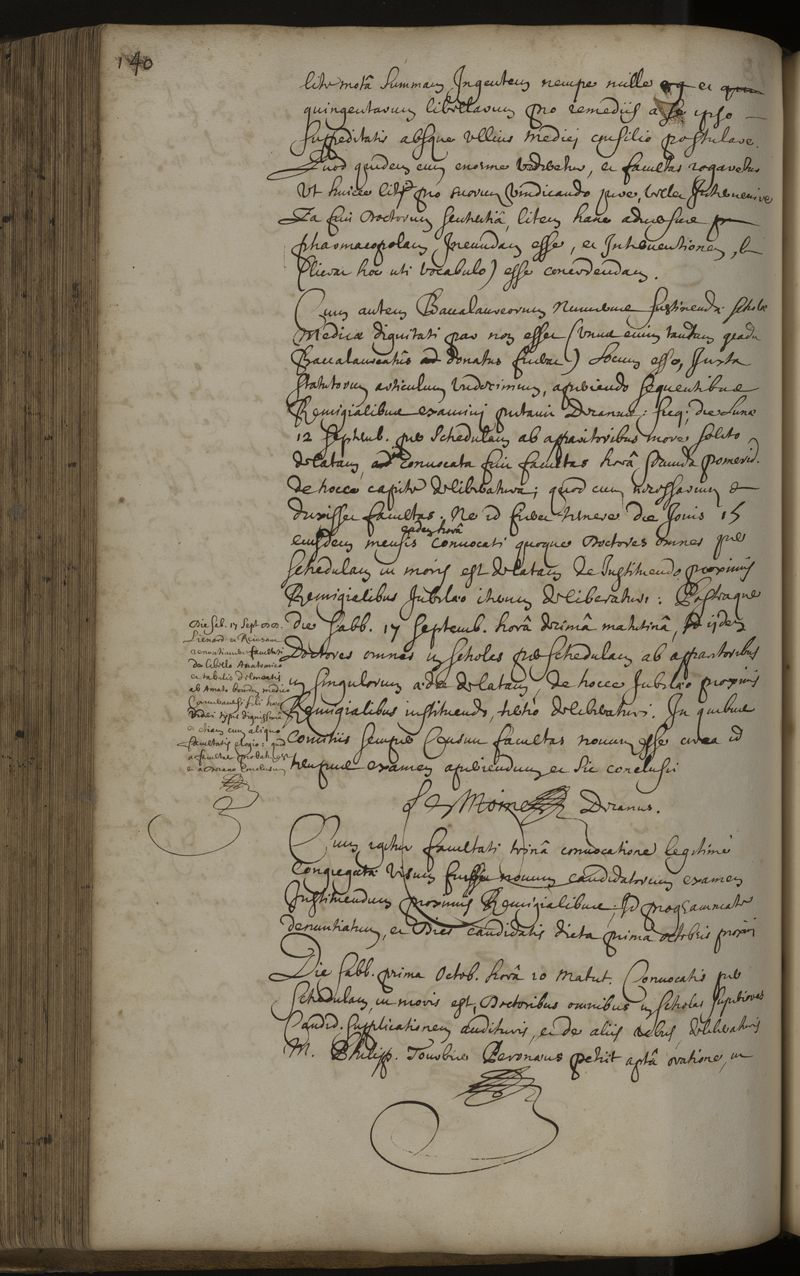 140
lite motâ summam Ingentem nempe mille et
quingentarum librarum pro remediis a se ipso
suppeditatis absque ullius medici consilio postulare.
Quod quidem cum enorme videretur, et facultas rogaretur
ut huicce liti pro suorum vindicando jure, vellet Intervenire
Ea fuit Doctorum sententiâ, litem hanc adversus
pharmacopolam Ineundam esse, et Interventionem,
(liceat hoc uti vocabulo) esse concedendam.
Cum autem Baccalaureorum Numerus sustinendæ scholæ
Medicæ dignitati par non esset (unus enim tantum gradu
Baccalaureatus donatus fuerat) locum esse, Juxta
statutorum articulum undecimum, aperiendo sequentibus
Remigialibus examini putavit Decanus; sicq; die lunæ
12 septemb. per schedulam ab apparitoribus more solito
delatam, convocata fuit facultas horâ secunda pomerid.
de hocce capite deliberatura; quod cum necessarium
duxisset facultas. Ne id fieret temere die Jovis 15
eadem horâ
ejusdem mensis convocati quoque Doctores omnes per
schedulam ut moris est delatam de Instituendo proximis
Remigialibus Jubilæo iterum deliberaturi. Postraque
die sabb. 17 septemb. horâ decimâ matutinâ, iidem
Doctores omnes in scholas per schedulam ab apparitoribus
in singulorum ædes delatam, de hocce Jubilæo proximis
Remigialibus instituendo, tertio deliberaturi. In quibus
comitiis semper censuit facultas novum esse circa id
tempus examen aperiendum et sic conclusit
Le Moine Decanus.
Die sab. 17 sept.
Lienard et
renuntiantibus facultati
de libello Anatomico
et tabulis
ab Amato Bourdon medico
Cameracensi
videri typis dignissima
etiam cum aliquo
facultatis elogio; quod
a facultate probatum est
et a decano conclusum
Cum igitur facultati trinâ convocatione legitimè
congregatæ visum fuisset novum candidatorum examen
Instituendum proximis Remigialibus, Id programmate
denuntiatum, et Dies candidatis dicta prima octobris proximi
Die sabb. prima Octob. horâ 10 matut. Convocatis per
schedulam, ut moris est, Doctoribus omnibus in scholas superiores
Candid. supplicationem audituris, et de aliis rebus, deliberaturis
M. Philipp. Peronæus petiit aptâ oratione, ut